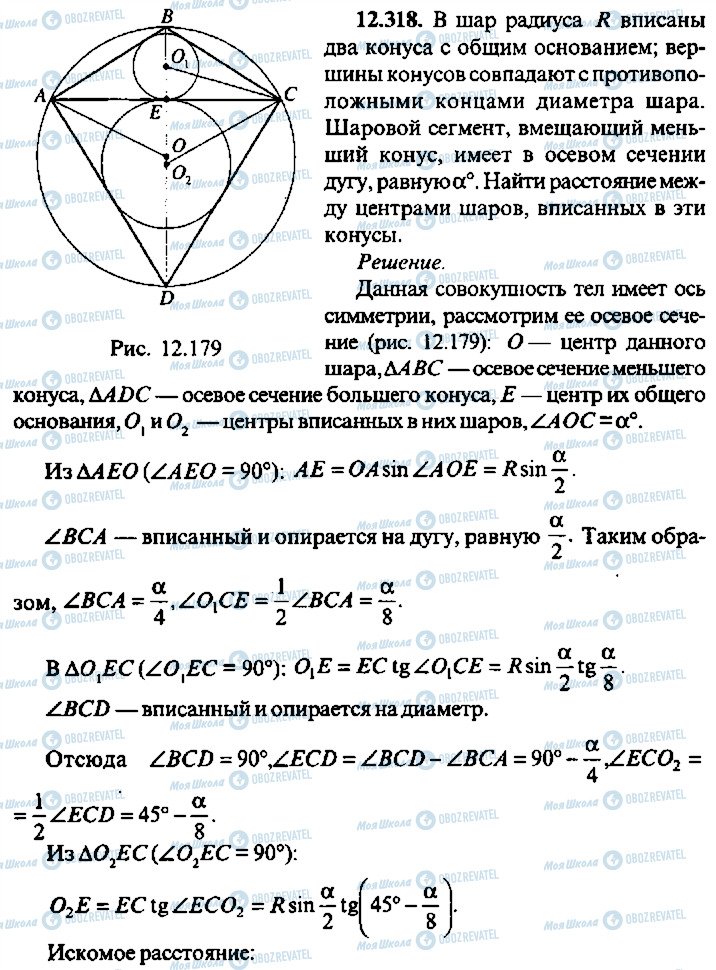 B
O₁
A
C
E
O
O₂
D
Рис. 12.179
12.318. В шар радиуса R вписаны
два конуса с общим основанием; вер-
шины конусов совпадают с противопо-
ложными концами диаметра шара.
Шаровой сегмент, вмещающий мень-
ший конус, имеет в осевом сечении
дугу, равную α°. Найти расстояние меж-
ду центрами шаров, вписанных в эти
конусы.
Решение.
Данная совокупность тел имеет ось
симметрии, рассмотрим ее осевое сече-
ние (рис. 12.179): O — центр данного
шара, ΔABC — осевое сечение меньшего
конуса, ΔADC — осевое сечение большего конуса, E — центр их общего
основания, O₁ и O₂ — центры вписанных в них шаров, ∠AOC = α°.
Из ΔAEO (∠AEO = 90°): AE = OA sin ∠AOE = R sin α/2.
∠BCA — вписанный и опирается на дугу, равную α/2. Таким обра-
зом, ∠BCA = α/4, ∠O₁CE = 1/2 ∠BCA = α/8.
В ΔO₁EC (∠O₁EC = 90°): O₁E = EC tg ∠O₁CE = R sin α/2 tg α/8.
∠BCD — вписанный и опирается на диаметр.
Отсюда ∠BCD = 90°, ∠ECD = ∠BCD – ∠BCA = 90° – α/4, ∠ECO₂ =
= 1/2 ∠ECD = 45° – α/8.
Из ΔO₂EC (∠O₂EC = 90°):
O₂E = EC tg ∠ECO₂ = R sin α/2 tg(45° – α/8).
Искомое расстояние:
Моя Школа OBOZREVATEL